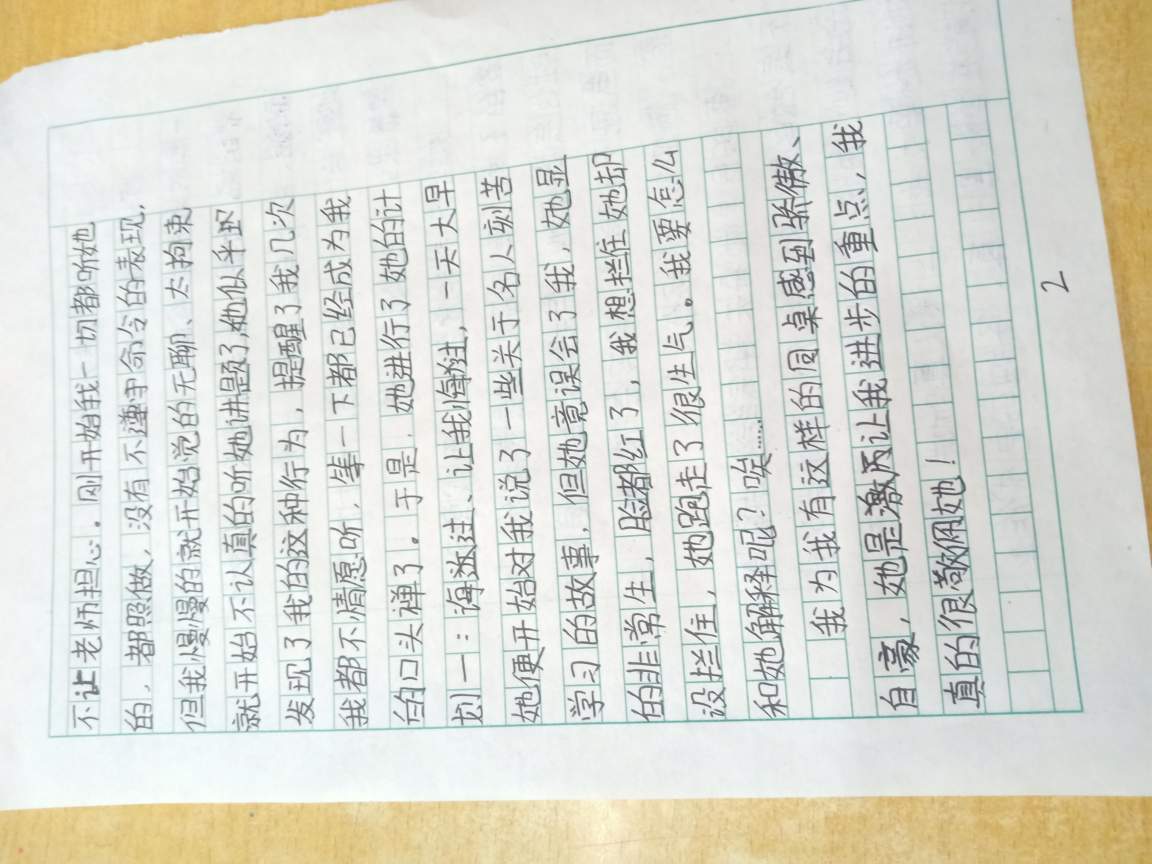 不让老师担心。刚开始我一切都听她
的，都照做，没有不遵守命令的表现，
但我慢慢的就开始觉的无聊、太拘束
就开始不认真的听她讲题了，她似乎
发现了我的这种行为，提醒了我几次
我都不情愿听，等一下都已经成为我
的口头禅了。于是，她进行了她的计
划一：海边注、让我海注，一天大早
她便开始对我说了一些关于名人刻苦
学习的故事，但她竟误会了我，她显
的非常生，脸都红了，我想拦住她却
没拦住，她跑走了很生气。我要怎么
和她解释呢？唉……
我为我有这样的同桌感到骄傲、
自豪，她是激历让我进步的重点，我
真的很敬佩她！
2